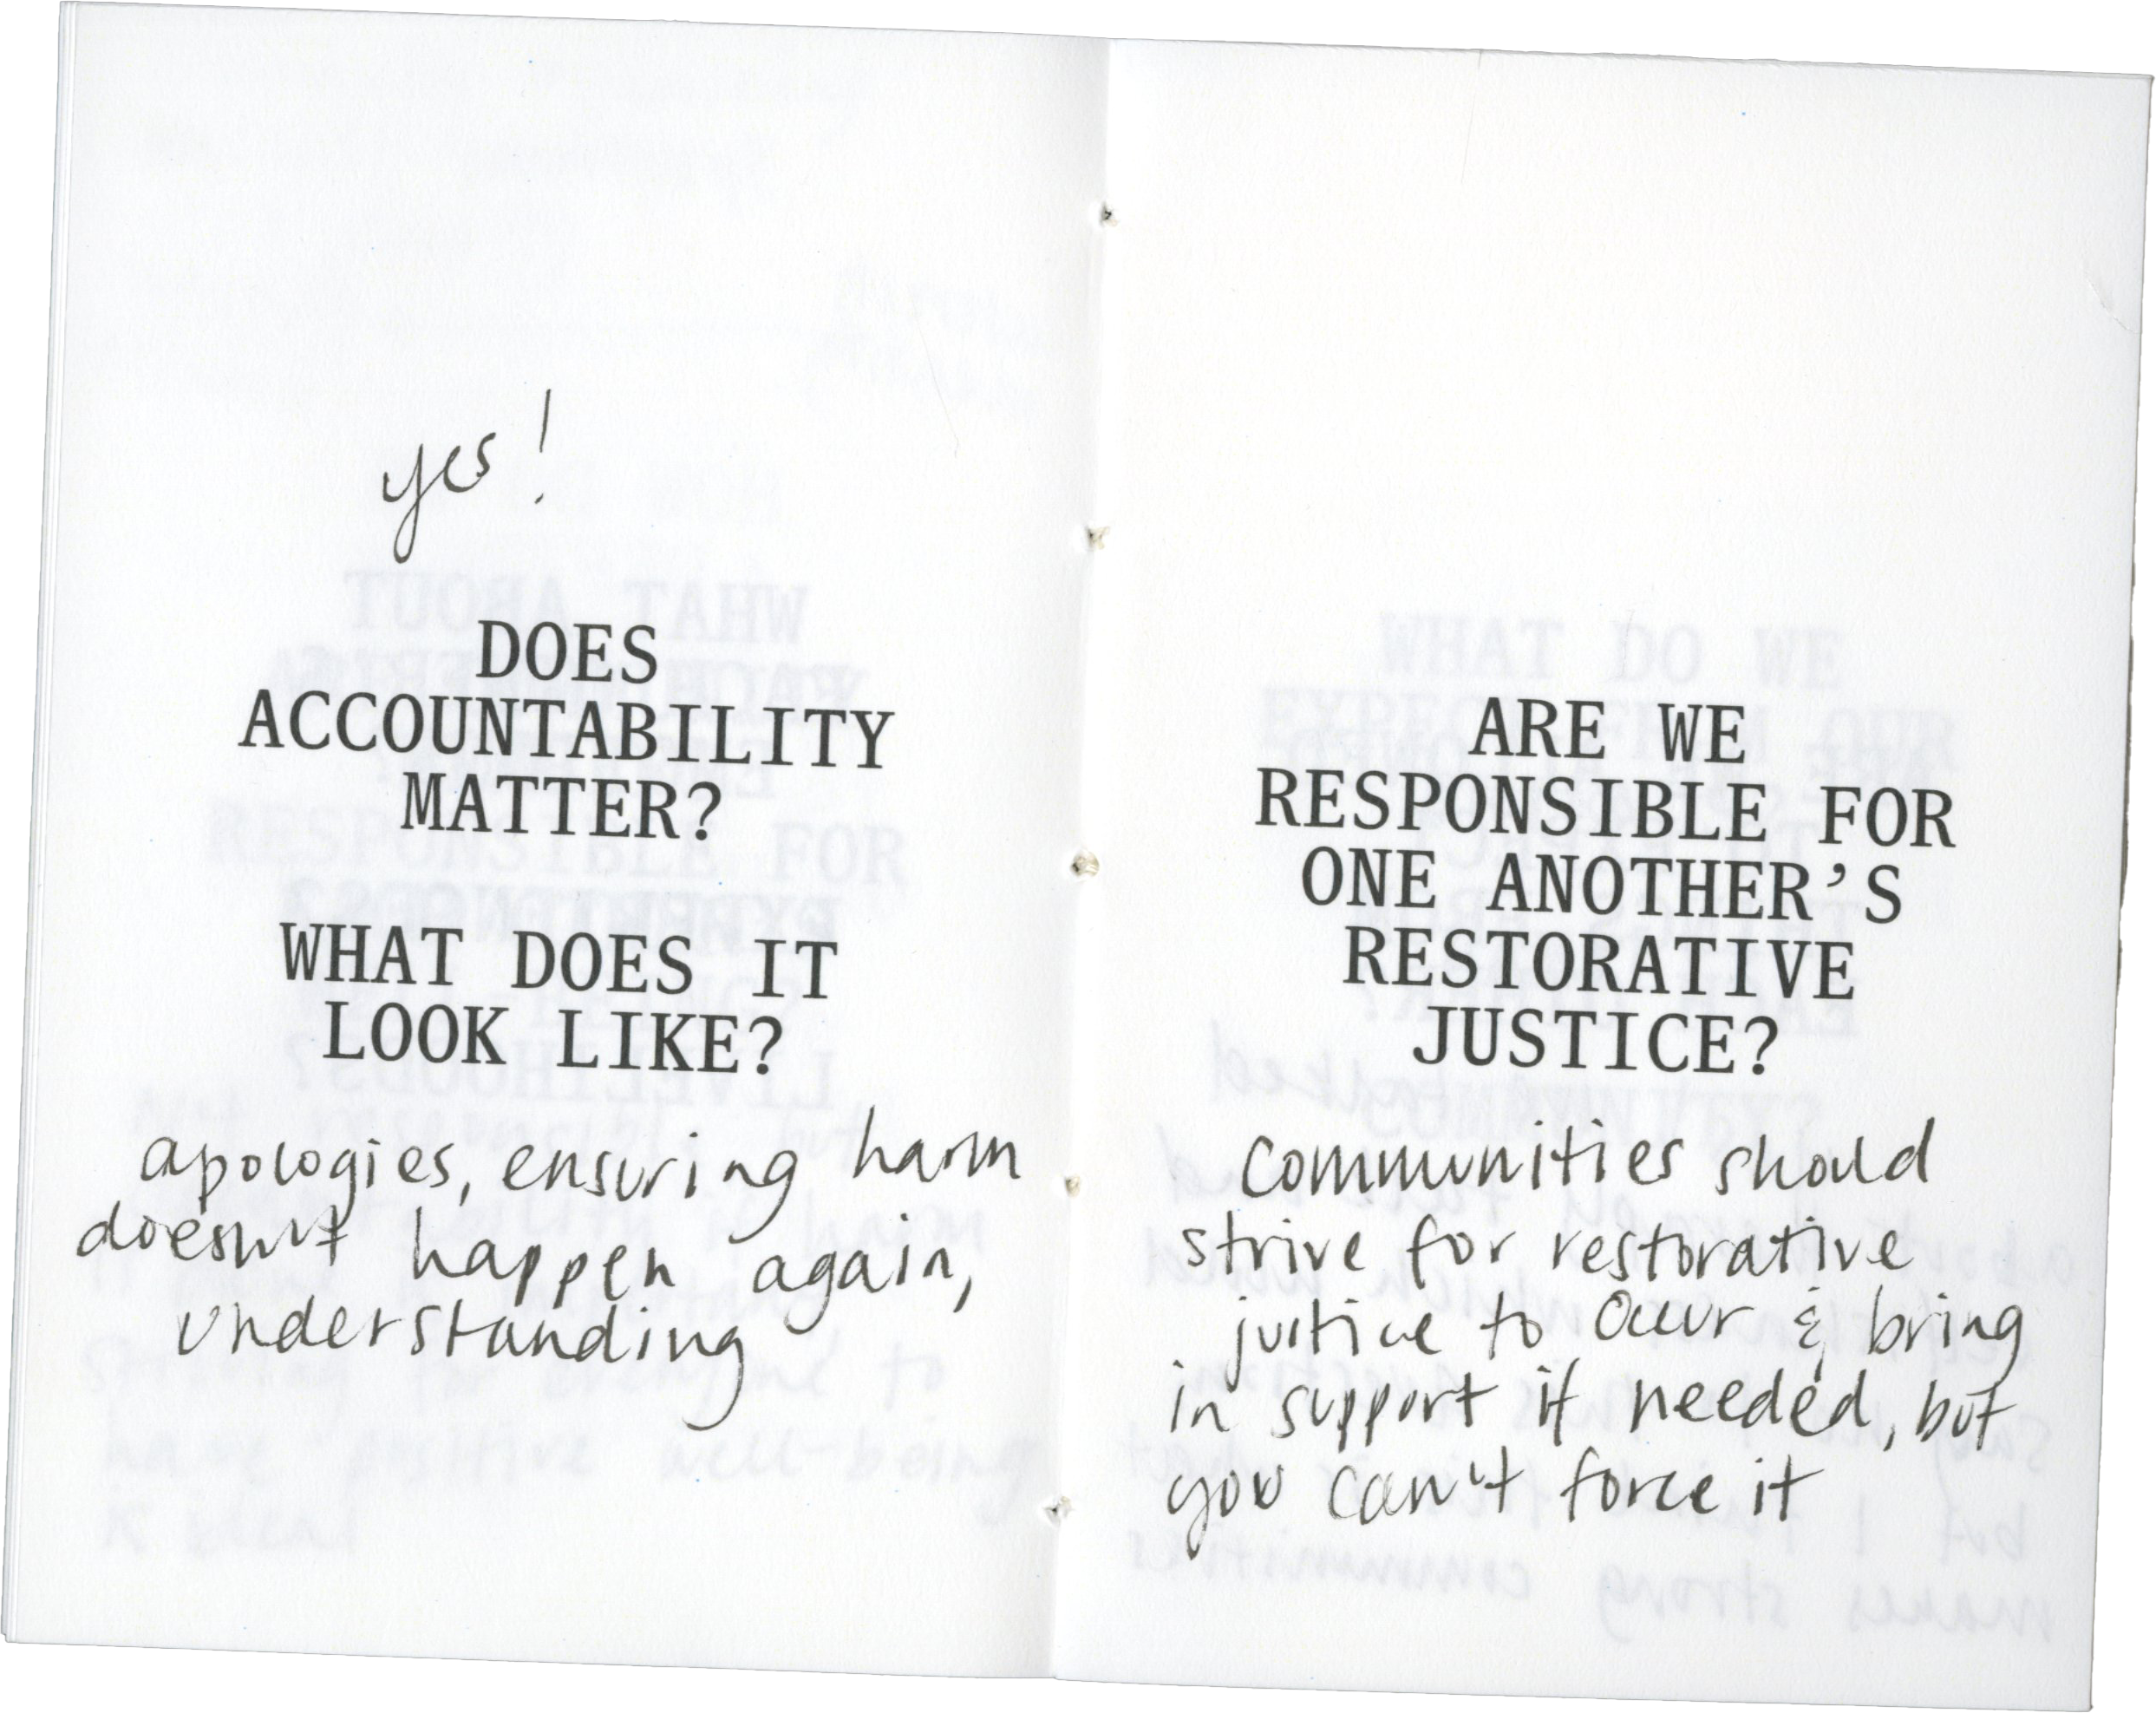 yes!
DOES
ACCOUNTABILITY
MATTER?
WHAT DOES IT
LOOK LIKE?
apologies, ensuring harm
doesn't happen again,
understanding
ARE WE
RESPONSIBLE FOR
ONE ANOTHER'S
RESTORATIVE
JUSTICE?
communities should
strive for restorative
justice to occur & bring
in support if needed, but
you can't force it